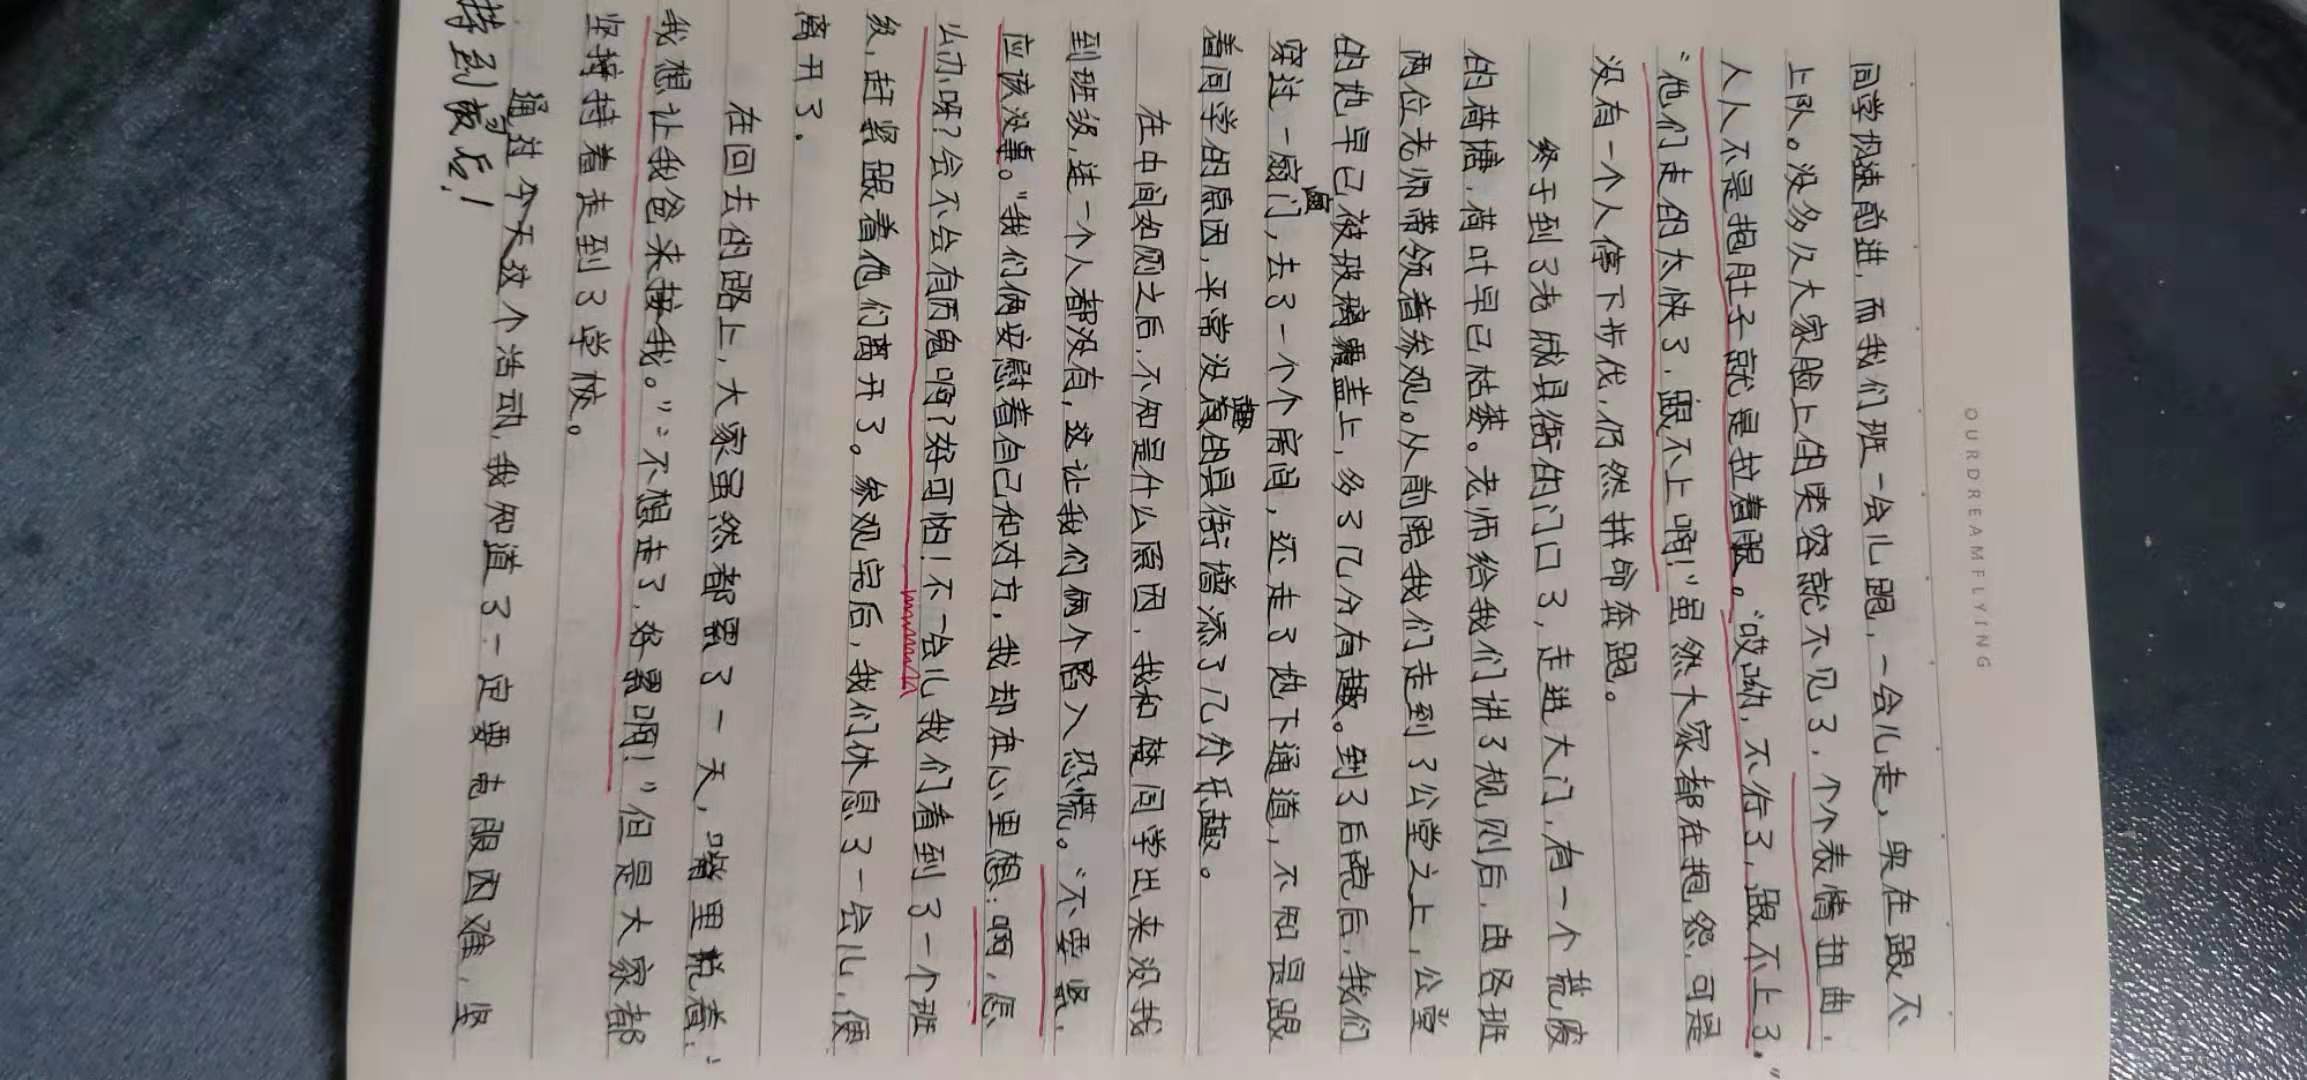 OURDREAMFLYING
同学快速前进,而我们班一会儿跑,一会儿走,实在跟不
上队。没多久大家脸上的笑容就不见了,个个表情扭曲,
人人不是抱肚子就是拉着腿。“哎呦,不行了,跟不上了。”
“他们走的太快了,跟不上啊!”虽然大家都在抱怨,可是
没有一个人停下步伐,仍然拼命奔跑。
终于到了老城县衙的门口了,走进大门,有一个荒废
的荷塘,荷叶早已枯萎。老师给我们讲了规则后,由各班
两位老师带领着参观。从前院我们走到了公堂之上,公堂
的地早已被玻璃覆盖上,多了几分有趣。到了后院后,我们
穿过一扇门,去了一个个房间,还走了地下通道,不知是跟
着同学的原因,平常没趣的县衙增添了几分乐趣。
在中间如厕之后,不知是什么原因,我和楚同学出来没找
到班级,连一个人都没有,这让我们俩个陷入恐慌。“不要紧,
应该没事。”我们俩安慰着自己和对方,我却在心里想:啊,怎
么办呀?会不会有厉鬼啊?好可怕!不一会儿我们看到了一个班
级,赶紧跟着他们离开了。参观完后,我们休息了一会儿,便
离开了。
在回去的路上,大家虽然都累了一天,嘴里说着:“
我想让我爸来接我。”“不想走了,好累啊!”但是大家都
坚持持着走到了学校。
通过今天这个活动,我知道了一定要克服困难,坚
持到最后!